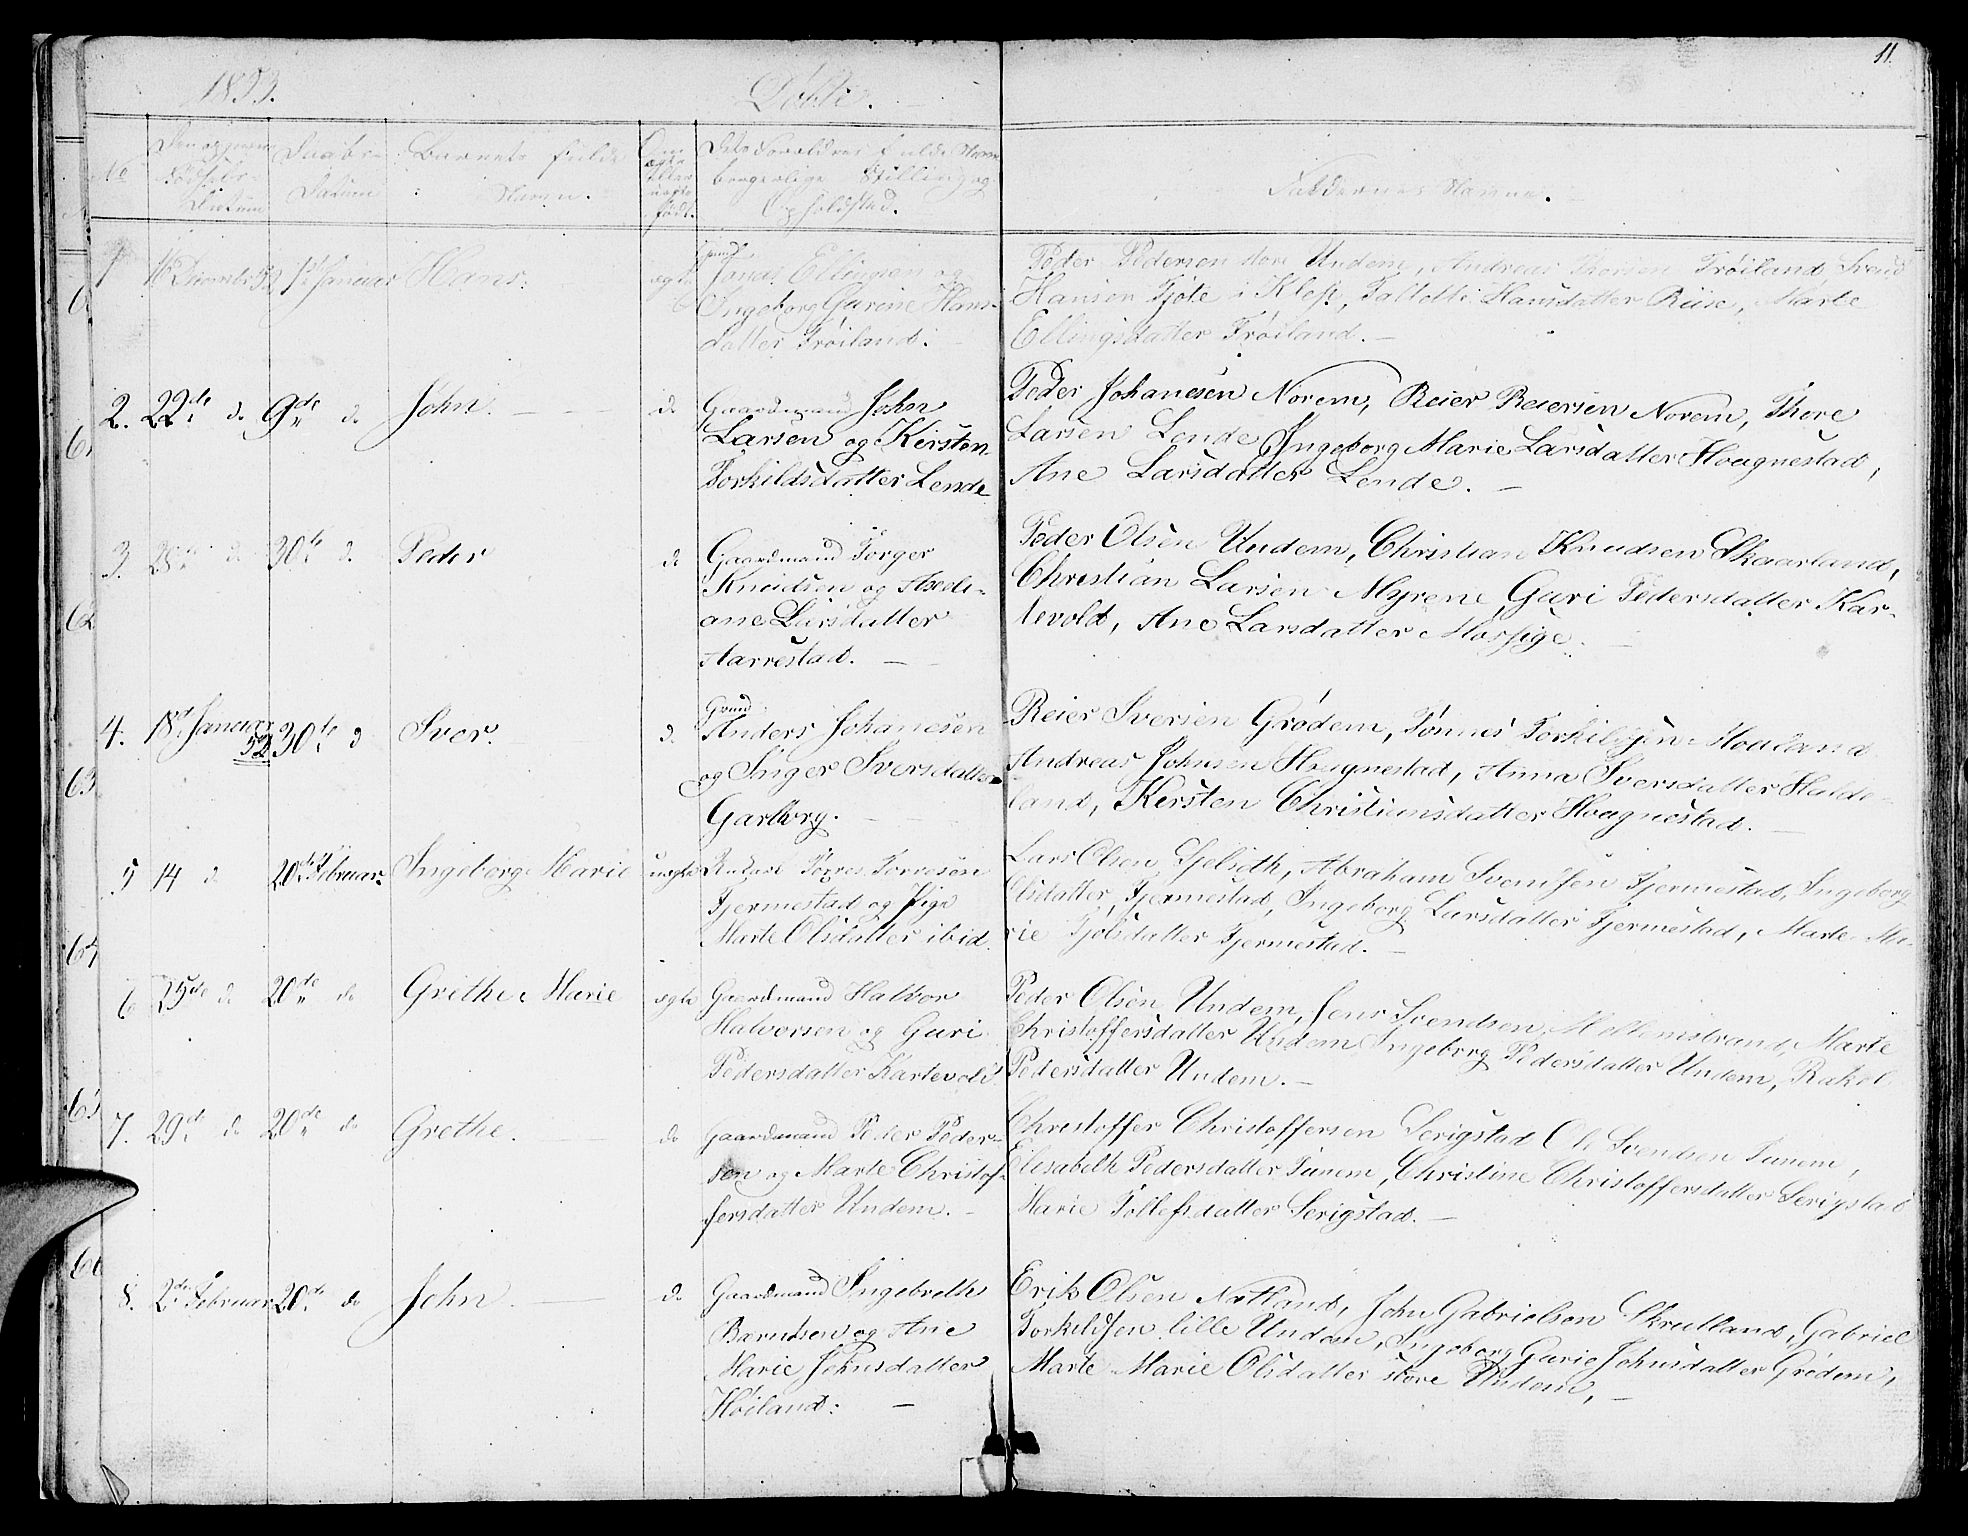 11.
1853.
Døbte.
No
Den og
Fødsels-
Datum
Daabs-
Datum
Barnets fulde
Navn.
Om
ægte
eller
uægte
født.
Forældres fulde Navne
borgerlige Stilling og
Opholdsted.
Faddernes Navne.
1 16 Decembr 52 1ste Januar Hans. ægte
Jonas Ellingsen og
Ingeborg Gurine Hans-
datter Frøiland.
Peder Pedersen store Undem, Andreas Thorsen Frøiland, Svend
Hansen Tjøte i Klep, Hansdatter Riise, Marte
Ellingsdatter Frøiland. —
2. 22de do 9de do John. — do Gaardmand John
Larsen og Kirsten
Torkildsdatter Lende
Peder Johanesen Norem, Reier Reiersen Norem, Thore
Larsen Lende, Ingeborg Marie Larsdatter Hougnestad,
Ane Larsdatter Lende. —
3. 28de do 30te do Peder do Gaardmand Torger
Knudsen og Axeli-
ane Larsdatter
Aarrestad. —
Peder Olsen Undem, Christian Knudsen Skaarland,
Christian Larsen Myrene, Guri Pedersdatter Kar-
tevold, Ane Larsdatter Mossige.
4. 18de Januar 52 30te d Iver. d. Gmd.
Anders Johanesen
og Inger Iversdatter
Garborg.
Reier Iversen Grødem, Tønnes Torkildsen Moaland
Andreas Johnsen Hougnestad, Anna Iversdatter Halde-
land, Kirsten Christiansdatter Hougnestad.
5 14 d 20de Februar. Ingeborg Marie uægte Unkarl Tørres Torresen
Tjermestad og Pige
Marte Olsdatter ibid.
Lars Olsen Sjelseth, Abraham Svendsen Tjermestad, Ingeborg
Olsdatter, Tjermestad, Ingeborg Larsdatter Tjermestad, Marte Ma-
rie Tjølsdatter Tjermestad. —
6 25de do 20de do Grethe Marie ægte Gaardmand Halvor
Halvorsen og Guri
Pedersdatter Kartevold
Peder Olsen Undem, Jens Svendsen Mellemstrand, Marte
Christoffersdatter Undem Ingeborg Pedersdatter Undem, Rakel
Pedersdatter Undem. —
7. 29de do 20de do Grethe. do Gaardmand Peder Peder-
sen og Marte Christof-
fersdatter Undem. —
Christoffer Christoffersen Serigstad Ole Svendsen Tunem,
Elisabeth Pedersdatter Tunem, Christine Christoffersdatter Serigstad
Marie Tollefsdatter Serigstad. —
8. 2den Februar 20de do John. — do Gaardmand Ingebreth
Berntsen og Ane
Marie Johnsdatter
Høiland: —
Erik Olsen Netland, John Gabrielsen Skrutland, Gabriel
Torkildsen lille Undem, Ingeborg Gurie Johnsdatter Grødem,
Marte Marie Olsdatter store Undem, —